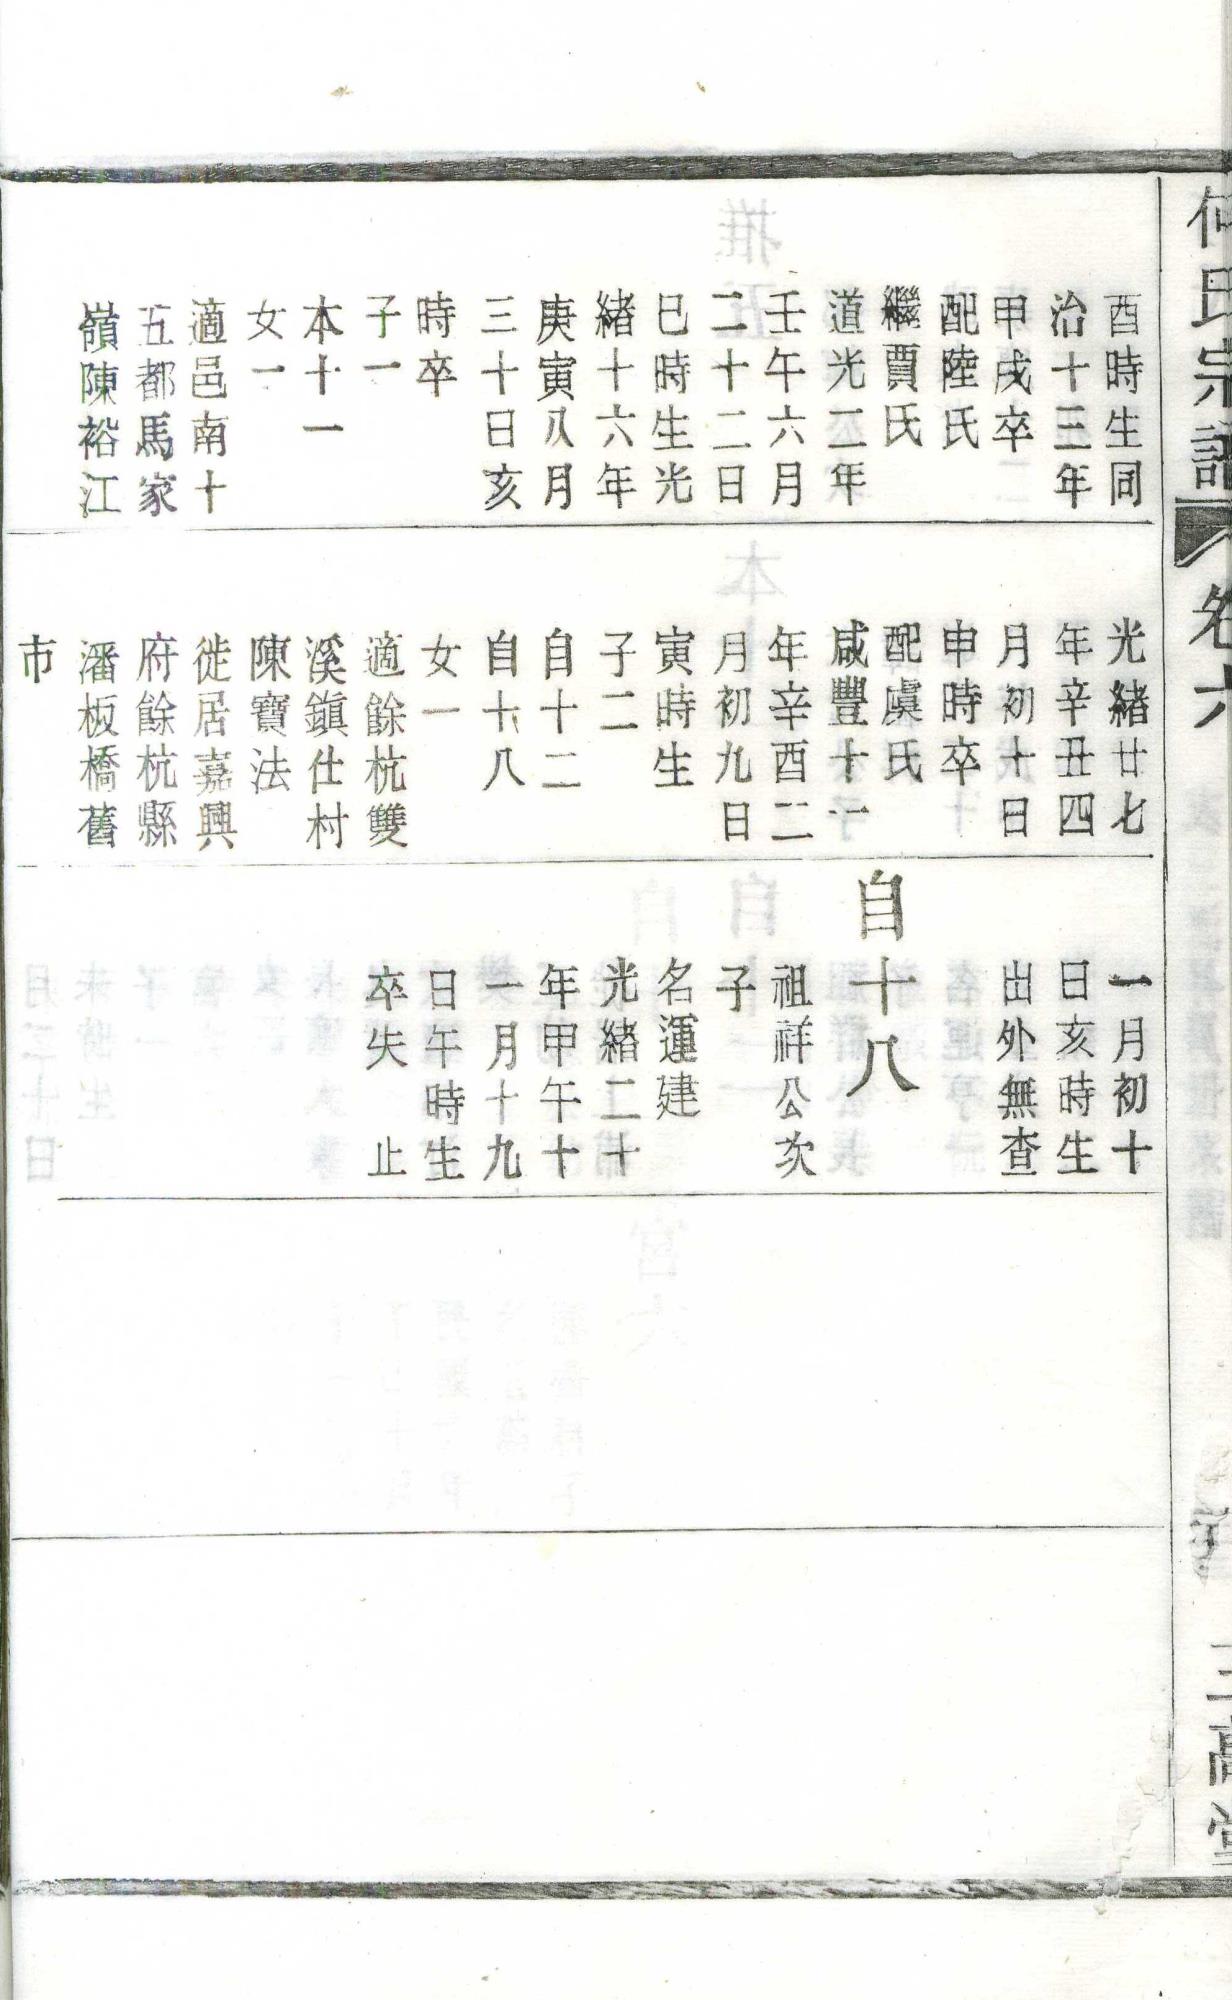 何氏宗譜
卷六
三高堂
酉時生同
治十三年
甲戌卒
配陸氏
繼賈氏
道光二年
壬午六月
二十二日
巳時生光
緒十六年
庚寅八月
三十日亥
時卒
子一
本十一
女一
適邑南十
五都馬家
嶺陳裕江
光緒廿七
年辛丑四
月初十日
申時卒
配虞氏
咸豐十一
年辛酉二
月初九日
寅時生
子二
自十二
自十八
女一
適餘杭雙
溪鎮仕村
陳寶法
徙居嘉興
府餘杭縣
潘板橋舊
市
一月初十
日亥時生
出外無查
自十八
祖祥公次
子
名運建
光緒二十
年甲午十
一月十九
日午時生
卒失 止